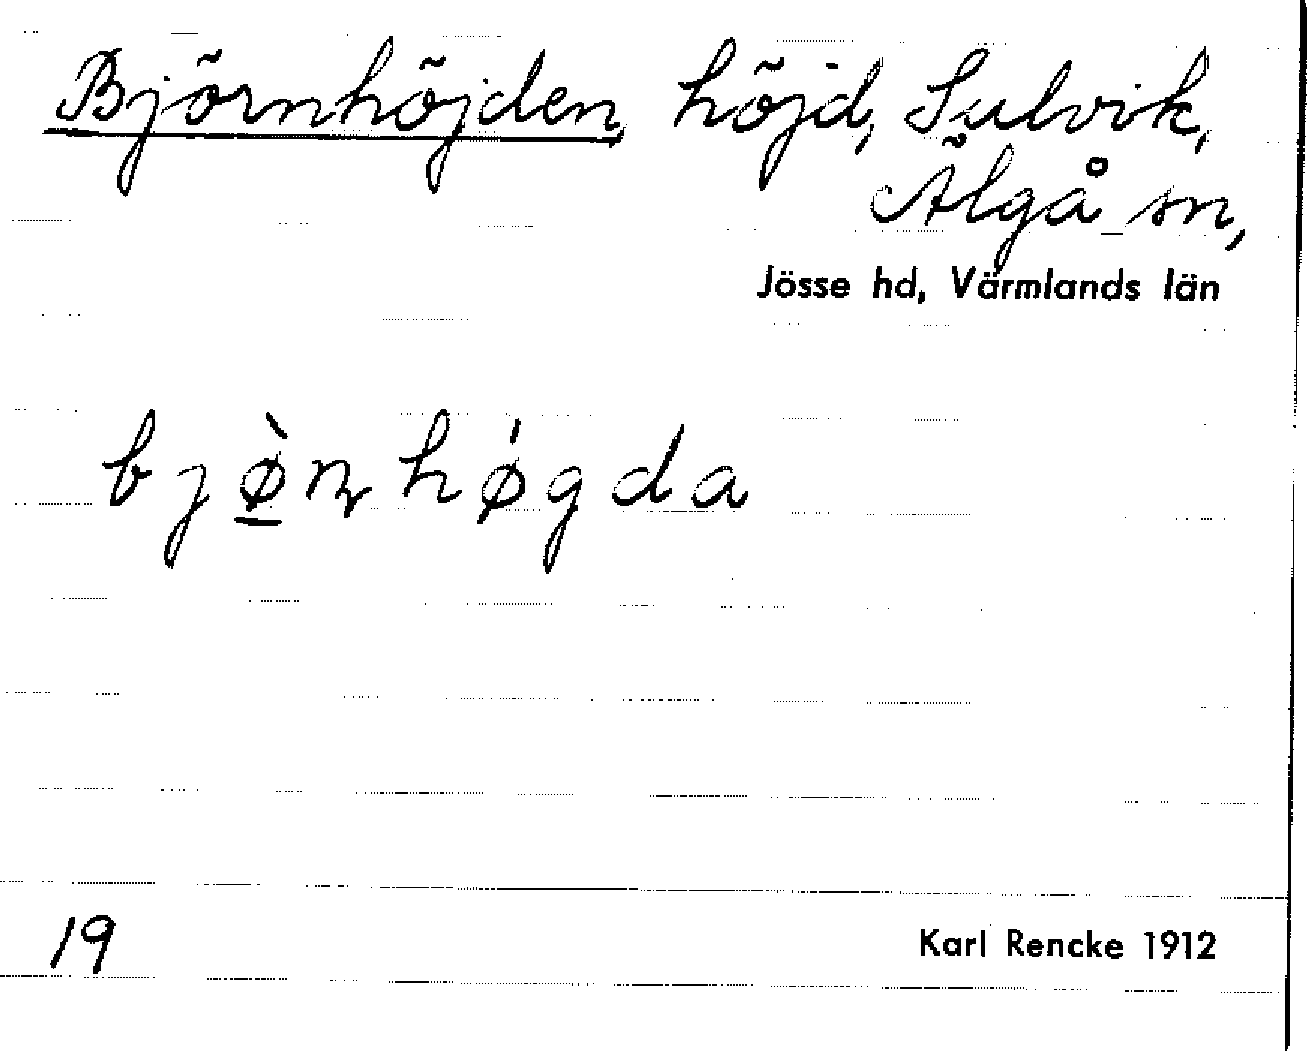 Björnhöjden, höjd, Sulvik,
Älgå sn,
Jösse hd, Värmlands län
bjø̱̀ɳhǿgda
19
Karl Rencke 1912